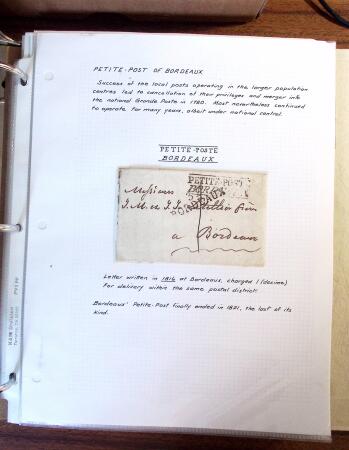 PETITE-POST OF BORDEAUX
Success of the local posts operating in the larger population
centres led to cancellation of their privileges and merger into
the national Grande Poste in 1780. Most nevertheless continued
to operate for many years, albeit under national control.
PETITE-POSTE
BORDEAUX
PETITE-POST
Messieurs
BORDEAUX
J.M. et
a Bordeaux
Letter written in 1816 at Bordeaux, charged 1 (decime)
for delivery within the same postal district.
Bordeaux' Petite-Post finally ended in 1821, the last of its
kind.